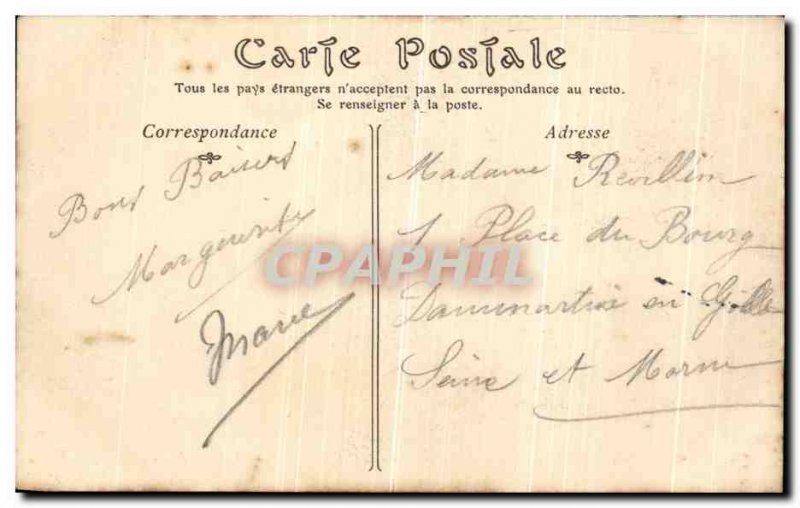 Carte Postale
Tous les pays étrangers n'acceptent pas la correspondance au recto.
Se renseigner à la poste.
Correspondance
Bons Baisers
Marguerite
Marie
Adresse
Madame
1 Place du Bourg
Dammartin en
Seine et Marne
CPAPHIL